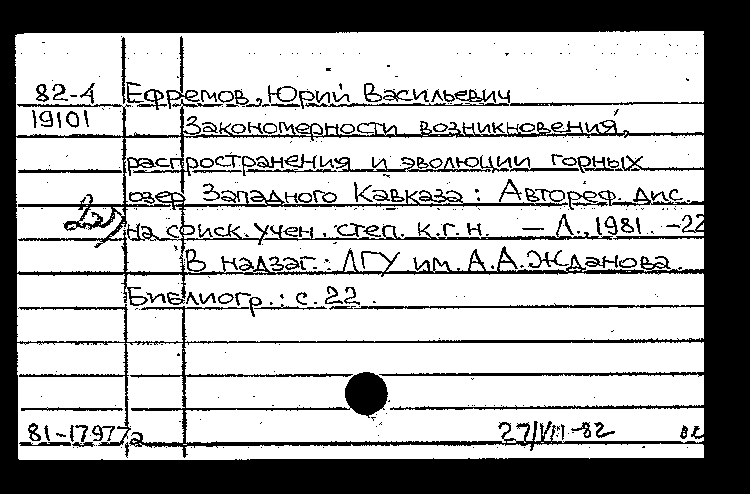 82-4 Ефремов, Юрий Васильевич
19101 Закономерности возникновения,
распространения и эволюции горных
озер Западного Кавказа : Автореф. дис.
на соиск. учен. степ. к.г.н. — Л., 1981. -22
В надзаг.: ЛГУ им. А.А. Жданова.
Библиогр.: с. 22.
81-17977а 27/VIII-82